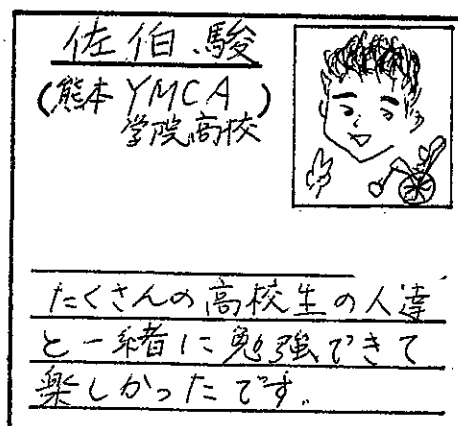 佐伯 駿
(熊本YMCA)
学院高校
たくさんの高校生の人達
と一緒に勉強できて
楽しかったです。